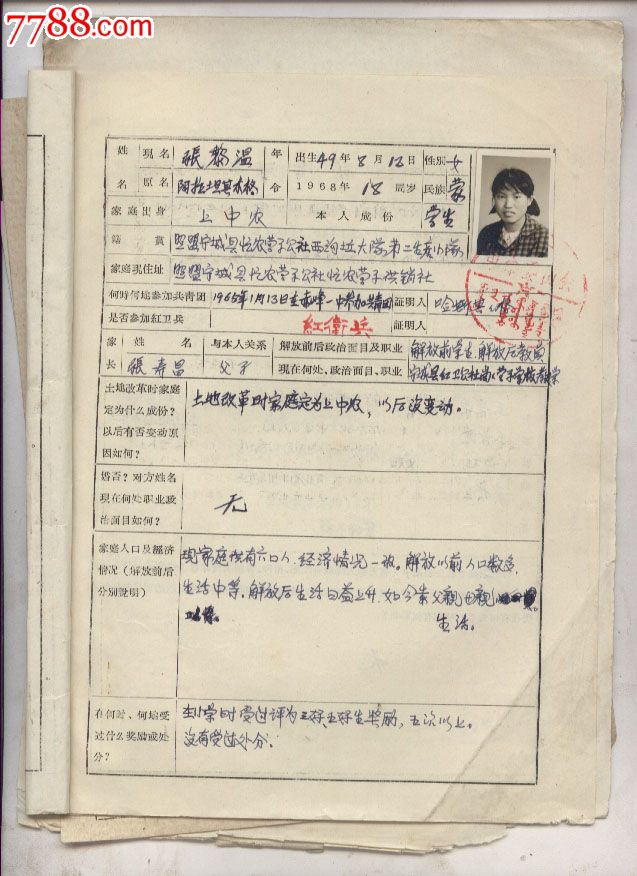 7788.com
姓 现名 張黎温 年 出生49年8月12日 性别 女
名 原名 阿拉坦其木格 令 1968年18周岁 民族 蒙
家庭出身 上中农 本人成份 学生
籍贯 昭盟宁城县忙农营子公社西沟拉大队第二生产小队
家庭现住址 昭盟宁城县忙农营子公社忙农营子供销社
何时何地参加共青团 1965年1月13日在赤峰一中参加共青团 証明人
是否参加红卫兵 紅衛兵 証明人
家 姓名 与本人关系 解放前后政治面目及职业 解放前学生,解放后教員
长 張寿昌 父子 现在何处、政治面目、职业 宁城县红卫公社 营子学校教学
土地改革时家庭
定为什么成份? 土地改革时家庭定为上中农,以后没变动。
以后有否变动原
因如何?
婚否?对方姓名
现在何处职业政 无
治面目如何?
家庭人口及經济 现家庭共有六口人,经济情况一般。解放以前人口数多,
情况(解放前后 生活中等,解放后生活日益上升,如今靠父親母親
分别說明) 生活。
在何时、何地受 在小学时受过评为三好五好生奖励,五次以上。
过什么奖励或处 没有受过处分。
分?